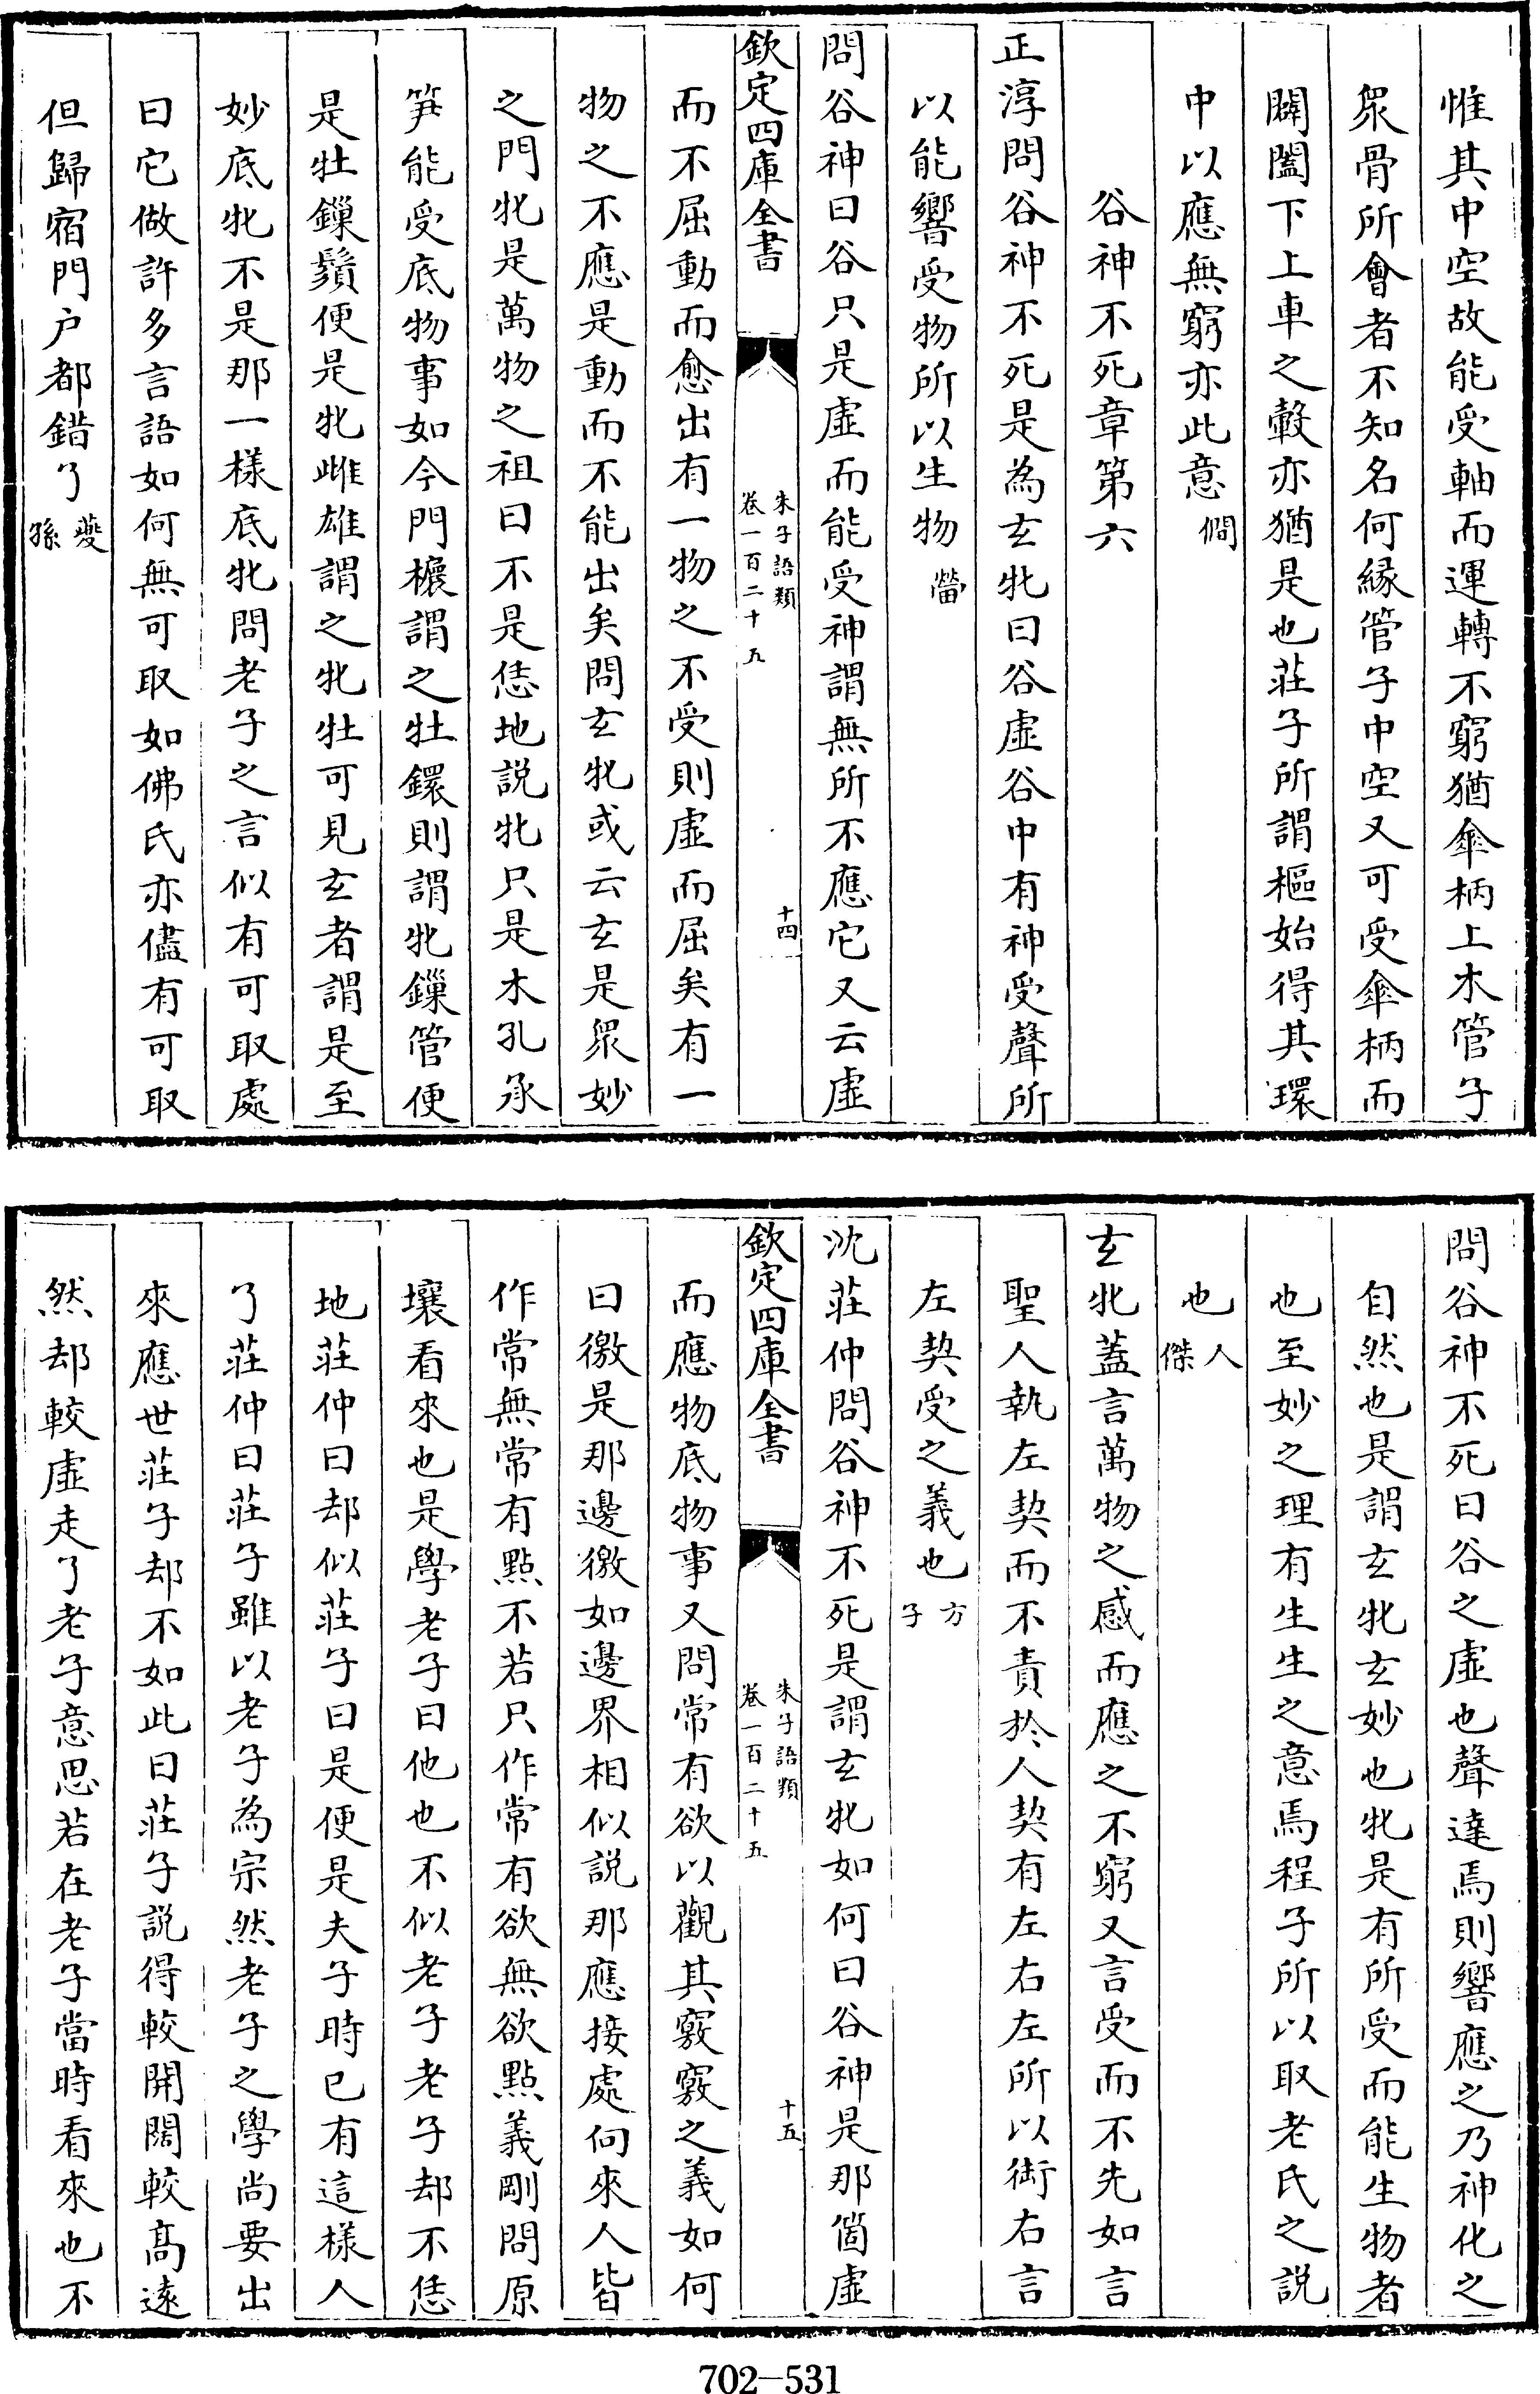 惟其中空故能受軸而運轉不窮猶傘柄上木管子
衆骨所會者不知名何緣管子中空又可受傘柄而
闢闔下上車之轂亦猶是也莊子所謂樞始得其環
中以應無窮亦此意 僩
谷神不死章第六
正淳問谷神不死是為玄牝曰谷虛谷中有神受聲所
以能響受物所以生物 㽦
問谷神曰谷只是虛而能受神謂無所不應它又云虛
欽定四庫全書
朱子語類
卷一百二十五
十四
而不屈動而愈出有一物之不受則虛而屈矣有一
物之不應是動而不能出矣問玄牝或云玄是衆妙
之門牝是萬物之祖曰不是恁地説牝只是木孔承
笋能受底物事如今門㯠謂之牡鐶則謂牝鏁管便
是牡鏁鬚便是牝雌雄謂之牝牡可見玄者謂是至
妙底牝不是那一樣底牝問老子之言似有可取處
曰它做許多言語如何無可取如佛氏亦儘有可取
但歸宿門户都錯了 夔孫
問谷神不死曰谷之虛也聲達焉則響應之乃神化之
自然也是謂玄牝玄妙也牝是有所受而能生物者
也至妙之理有生生之意焉程子所以取老氏之説
也 人傑
玄牝蓋言萬物之感而應之不窮又言受而不先如言
聖人執左契而不責於人契有左右左所以銜右言
左契受之義也 方子
沈莊仲問谷神不死是謂玄牝如何曰谷神是那箇虛
欽定四庫全書
朱子語類
卷一百二十五
十五
而應物底物事又問常有欲以觀其竅竅之義如何
曰徼是那邊徼如邊界相似説那應接處向來人皆
作常無常有點不若只作常有欲無欲點義剛問原
壤看來也是學老子曰他也不似老子老子却不恁
地莊仲曰却似莊子曰是便是夫子時已有這様人
了莊仲曰莊子雖以老子為宗然老子之學尚要出
來應世莊子却不如此曰莊子説得較開闊較髙遠
然却較虛走了老子意思若在老子當時看來也不
702-531